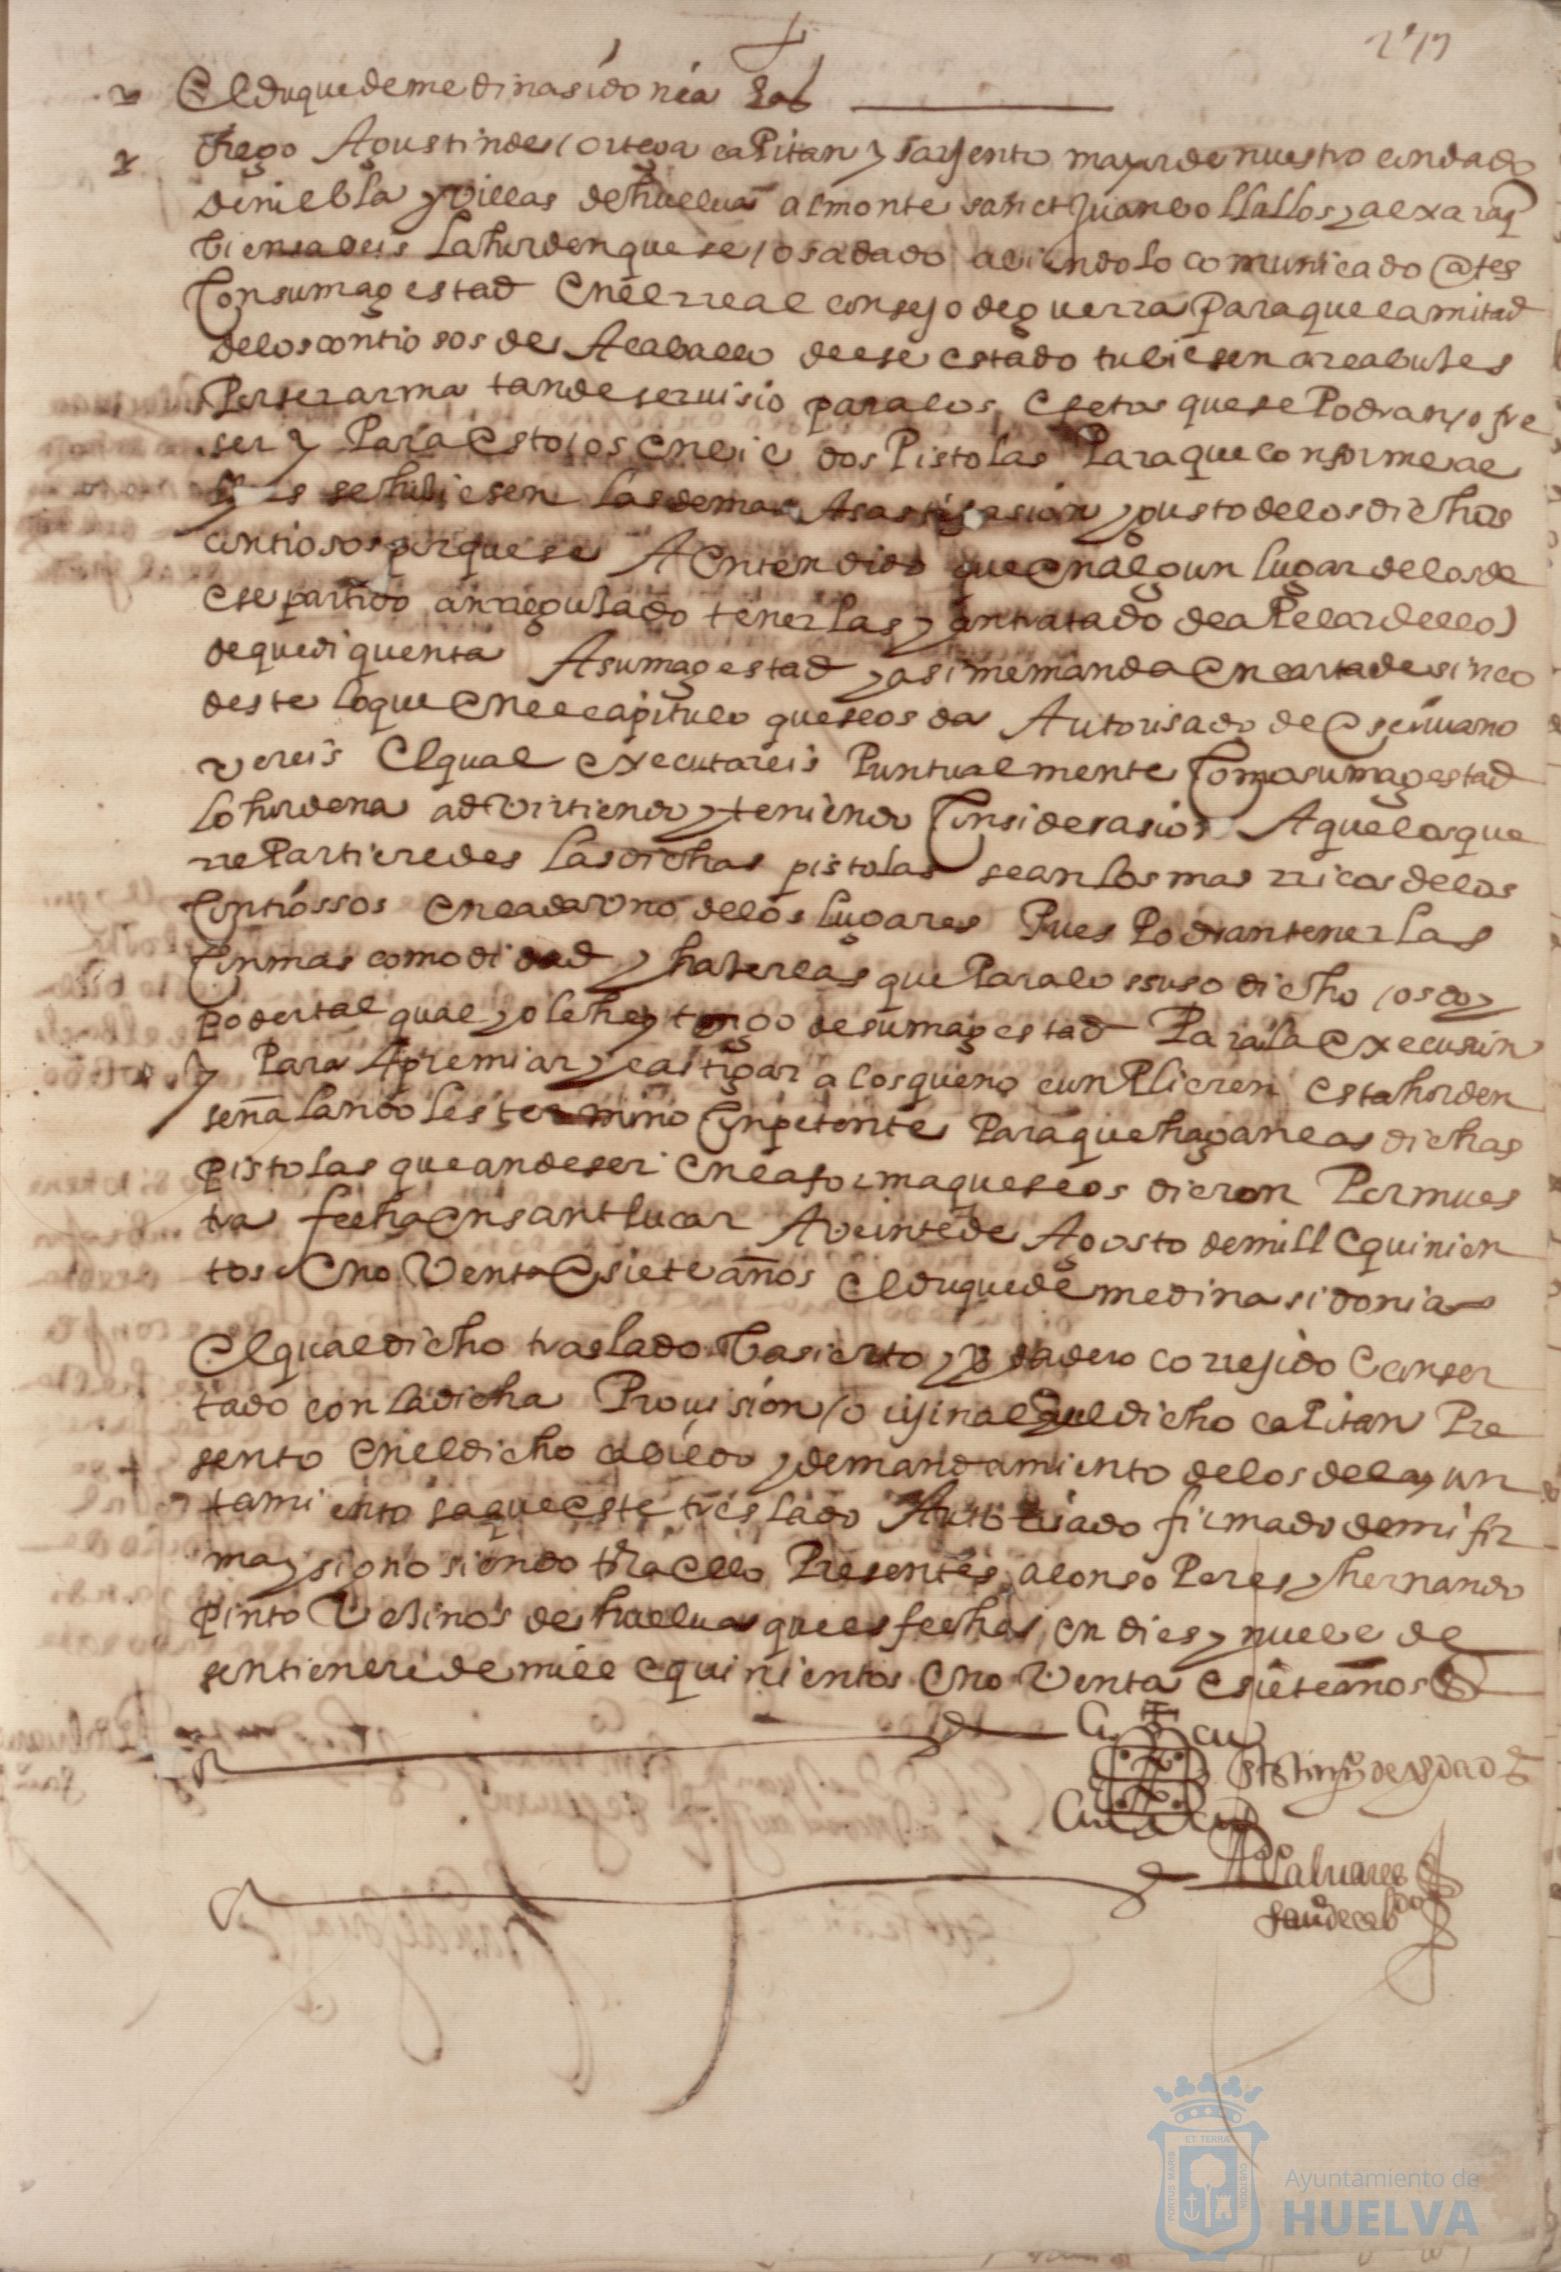 El duque de medina sidonia
diego Agustin de ortega capitan y sarjento mayor de nuestro condado
de niebla y villas de huelva almonte sanct Juan bollullos y alxaraq
bien saveis la horden que se os a dado aviendolo comunicado antes
con su magestad en el rreal consejo de guerra para que la mitad
de los contiosos de Acaballo de ese estado tubiesen arcabuses
Por ser arma tan de servisio para los efetos que se Podran ofre
ser y Para esto os enbie dos Pistolas Para que conforme a
ellas se hisiesen las demas A sastifasion y gusto de los dichos
contiosos porque se A entendido que en algun lugar de los de
ese partido an rregusado tenerlas y an tratado de aPelar dello
de que di quenta A su magestad y asi me manda en carta de sinco
deste lo que en el capitulo que se os da Autorisado de escrivano
vereis El qual executareis Puntualmente Como su magestad
lo hordena advirtiendo y teniendo Considerasion A que los que
rrePartieredes las dichas pistolas sean los mas rricos de los
Contiossos en cada uno de los lugares Pues Podran tenerlas
Con mas comodidad y haserlas que Para lo ssuso dicho os doy
poder tal qual yo le he y tengo de su magestad Para la execusion
y Para Apremiar y castigar a los que no cunPlieren esta horden
señalandoles termino Conpetente Para que hagan las dichas
pistolas que an de ser en la forma que se os dieron Por mues
tra fecha en sant lucar A veinte de Agosto de mill e quinien
tos e noventa E siete años El duque de medina sidonia
El qual dicho traslado va sierto y verdadero corregido e conser
tado con la dicha Provision orijinal quel dicho caPitan Pre
sento en el dicho cabildo y de mandamiento de los del ayun
tamiento saque este treslado Autorisado firmado de mi fir
ma y signo siendo tos a ello Presentes alonso Peres y hernando
pinto Vesinos de huelva ques fecha en dies y nueve de
sentienbre de mill e quinientos e noventa e siete años
en testimo de verdad
Alvares
escriuo de cabdo
Ayuntamiento de
HUELVA